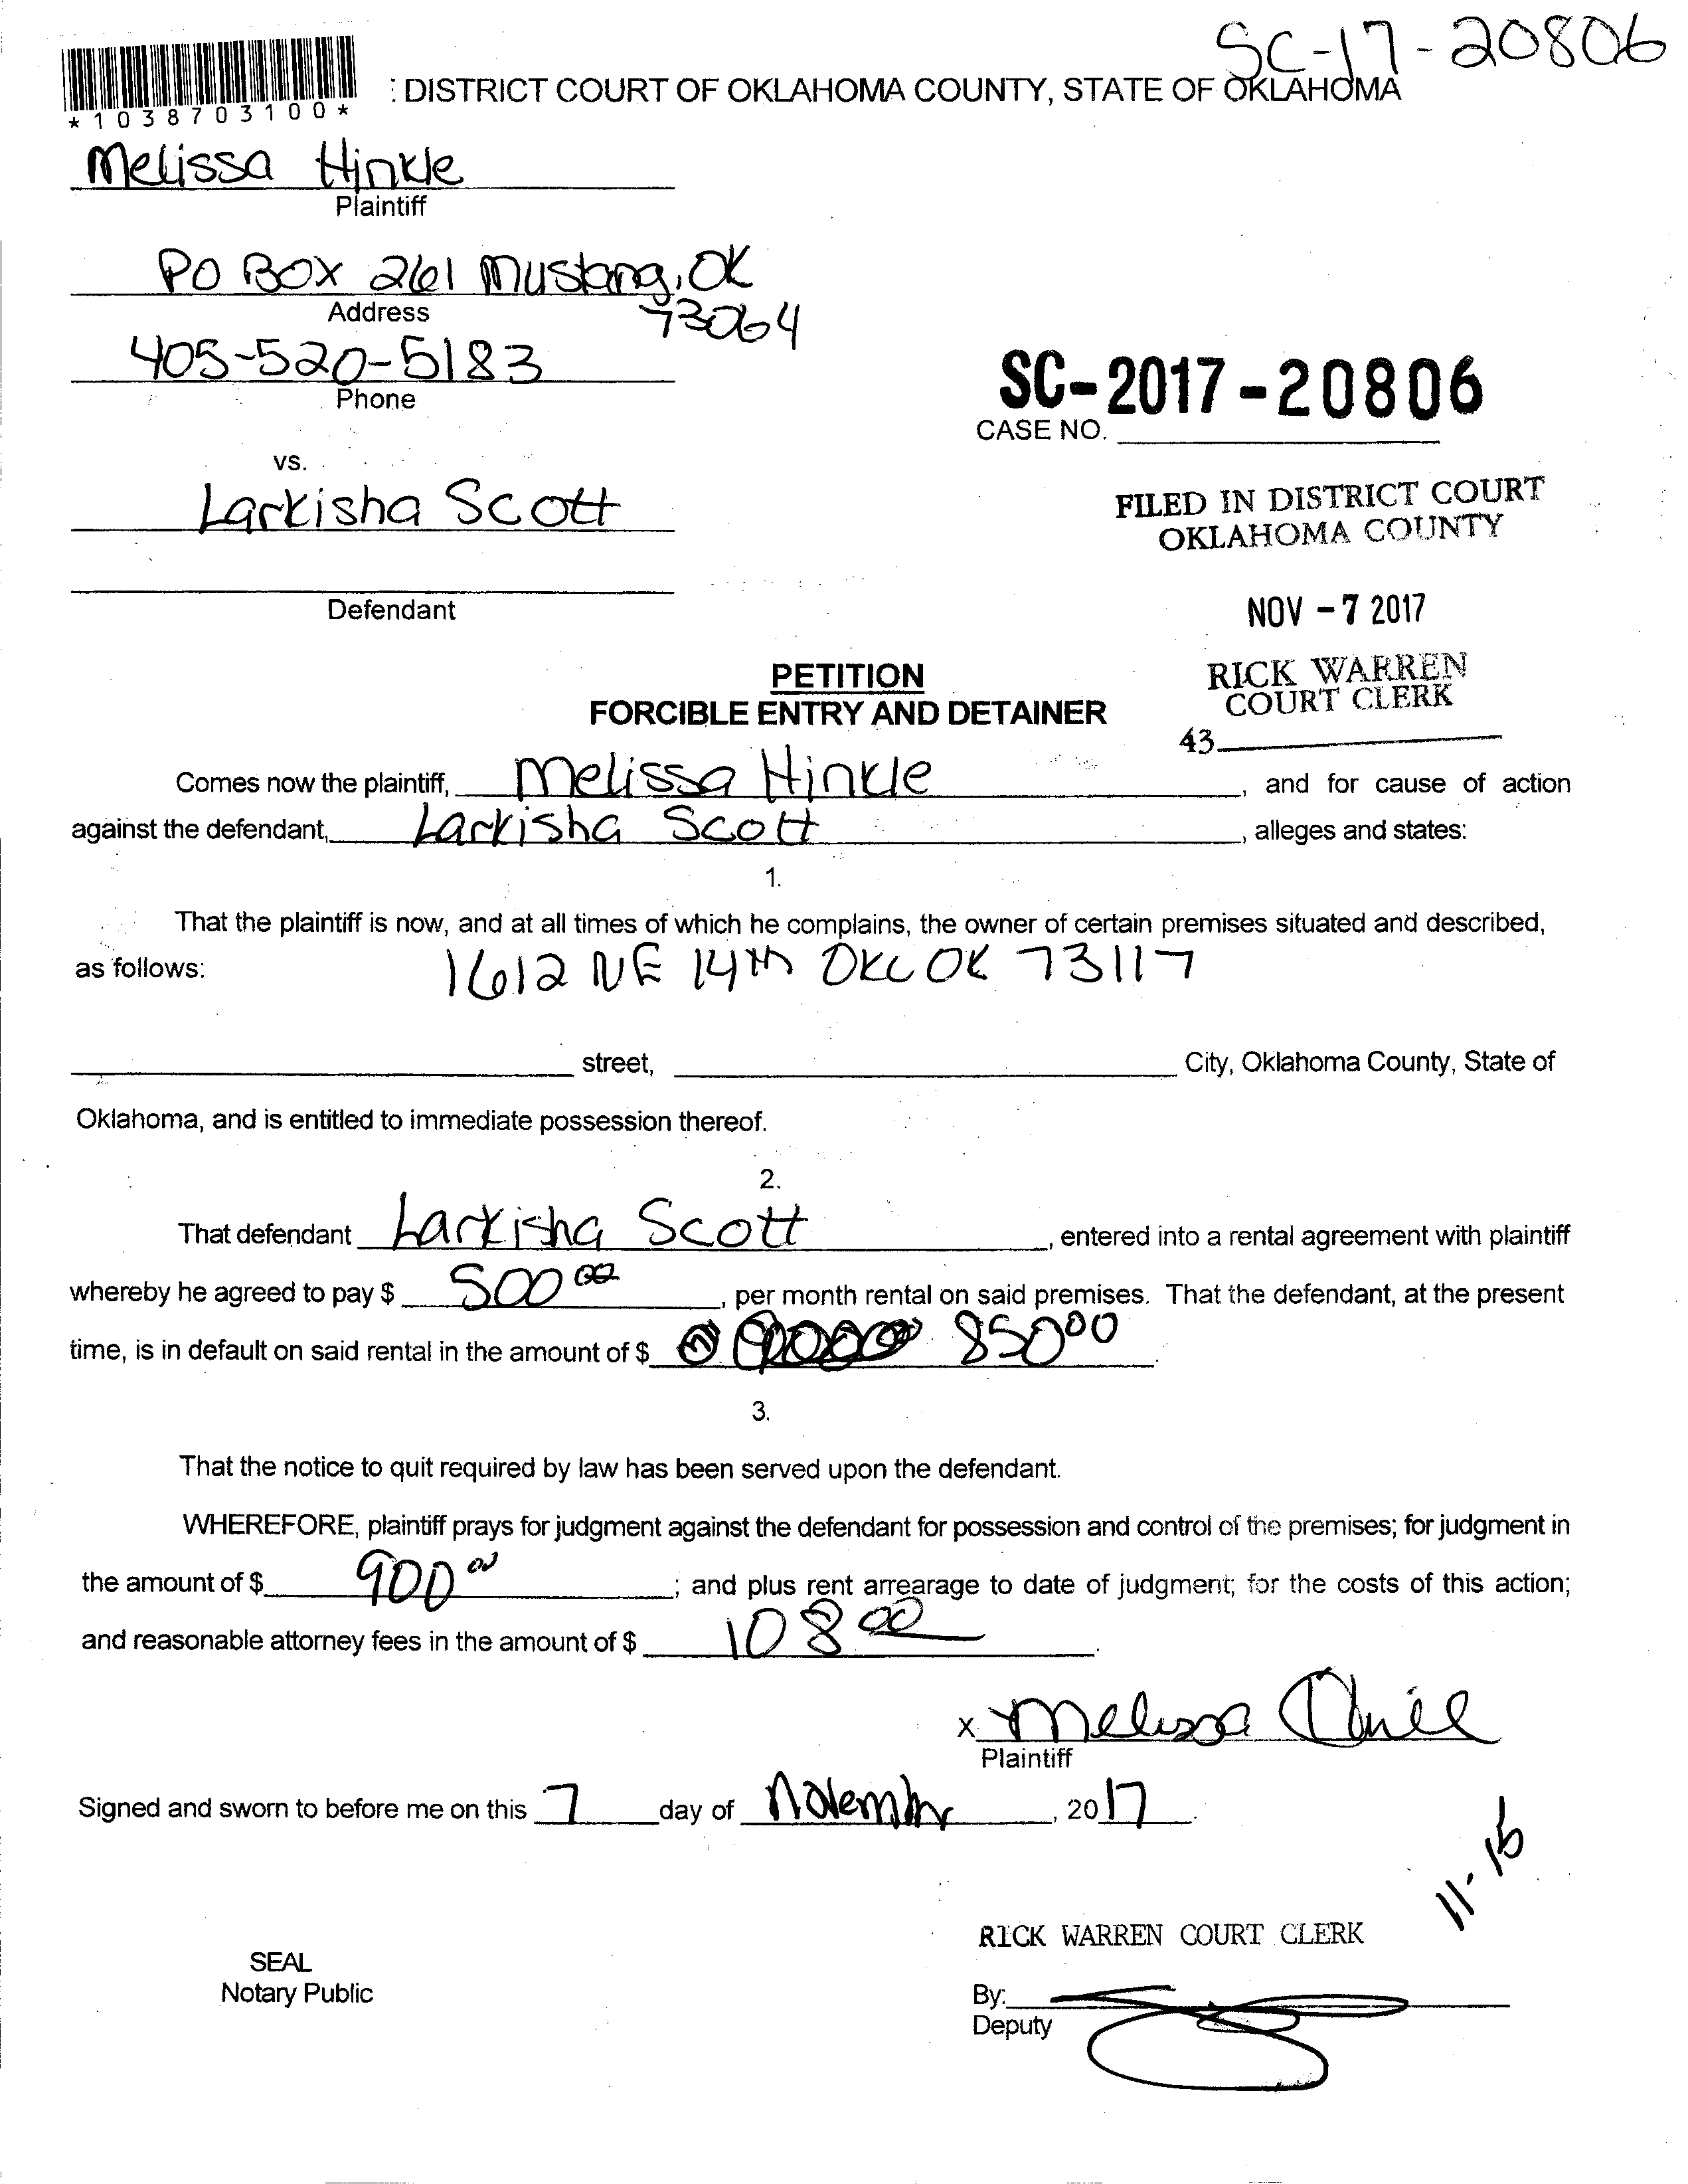 SC-17-20806
: DISTRICT COURT OF OKLAHOMA COUNTY, STATE OF OKLAHOMA
*1038703100*
Melissa Hinkle
Plaintiff
PO BOX 261 Mustang, OK
73064
Address
405-520-5183
Phone
SC-2017-20806
CASE NO.
vs.
Larkisha Scott
FILED IN DISTRICT COURT
OKLAHOMA COUNTY
Defendant
NOV - 7 2017
PETITION
FORCIBLE ENTRY AND DETAINER
RICK WARREN
COURT CLERK
43
Comes now the plaintiff, Melissa Hinkle, and for cause of action
against the defendant, Larkisha Scott, alleges and states:
1.
That the plaintiff is now, and at all times of which he complains, the owner of certain premises situated and described,
as follows: 1612 NE 14th OKC OK 73117
street, City, Oklahoma County, State of
Oklahoma, and is entitled to immediate possession thereof.
2.
That defendant Larkisha Scott, entered into a rental agreement with plaintiff
whereby he agreed to pay $ 500 00, per month rental on said premises. That the defendant, at the present
time, is in default on said rental in the amount of $ 850 00.
3.
That the notice to quit required by law has been served upon the defendant.
WHEREFORE, plaintiff prays for judgment against the defendant for possession and control of the premises; for judgment in
the amount of $ 900 00; and plus rent arrearage to date of judgment; for the costs of this action;
and reasonable attorney fees in the amount of $ 108 00.
x Melissa
Plaintiff
Signed and sworn to before me on this 7 day of November, 2017.
11-15
RICK WARREN COURT CLERK
SEAL
Notary Public
By:
Deputy